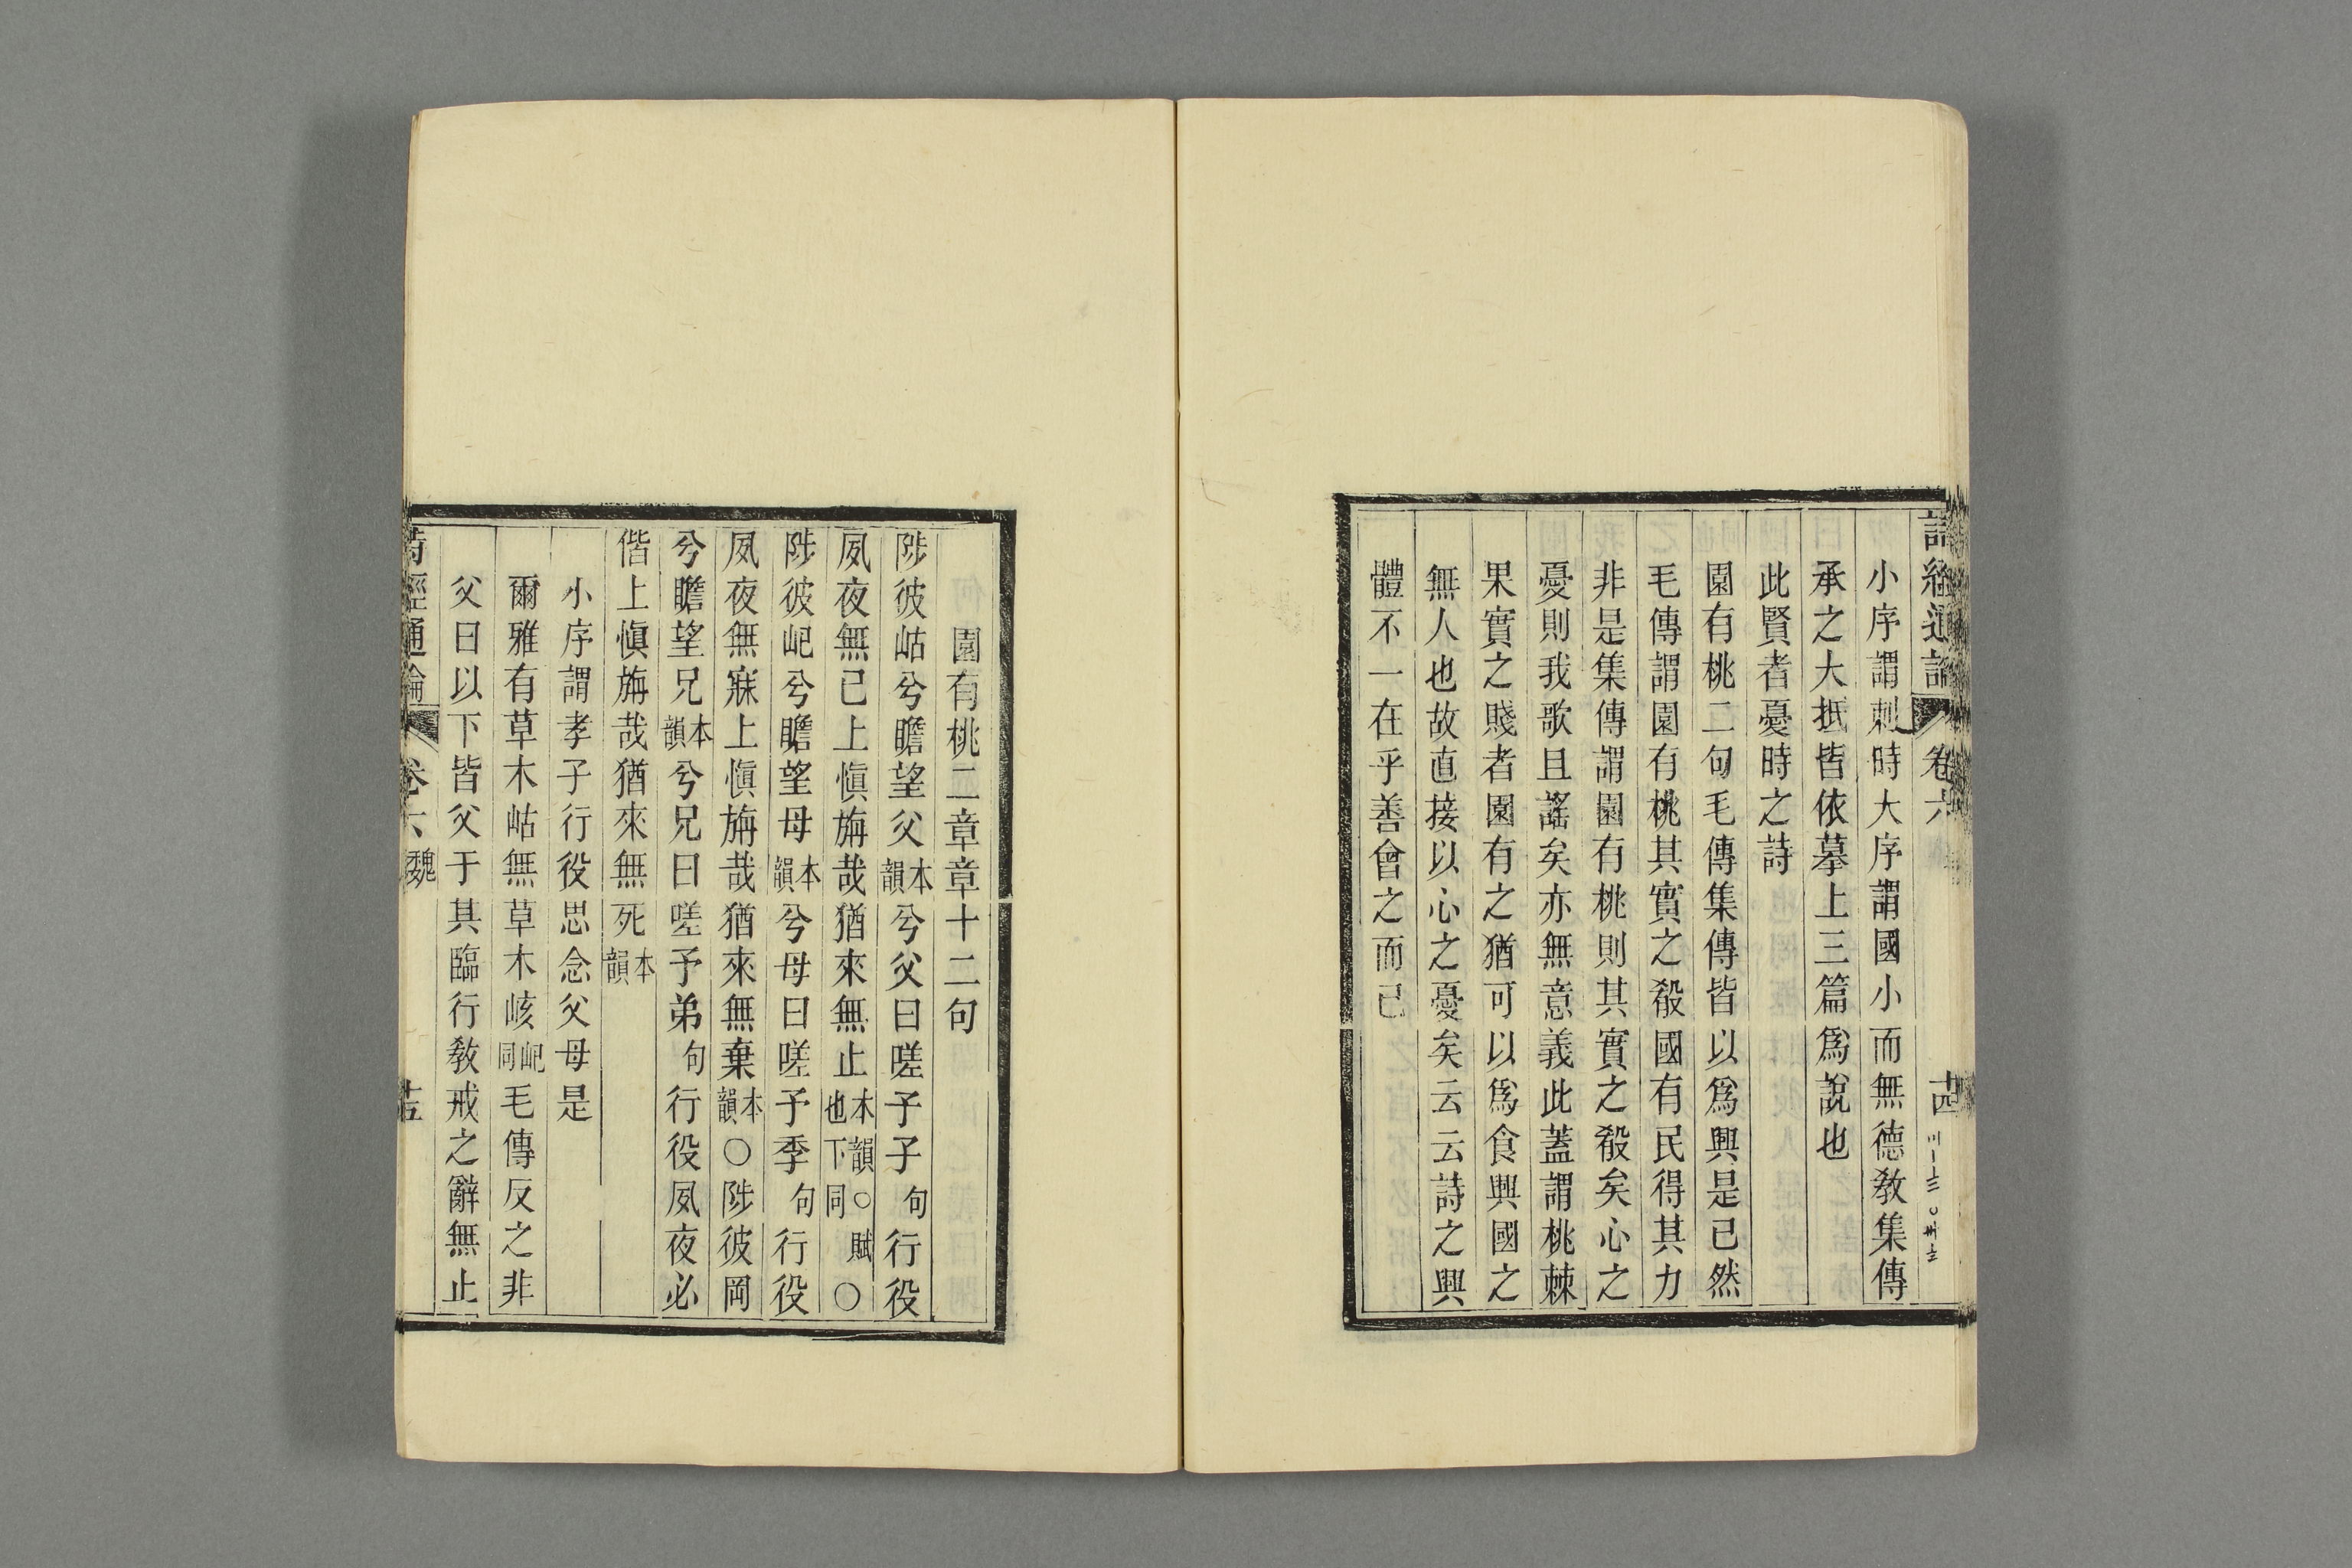 詩經通論 卷六 十四
小序謂刺時大序謂國小而無德敎集傳
承之大抵皆依摹上三篇爲說也
此賢者憂時之詩
園有桃二句毛傳集傳皆以爲興是已然
毛傳謂園有桃其實之殽國有民得其力
非是集傳謂園有桃則其實之殽矣心之
憂則我歌且謠矣亦無意義此蓋謂桃棘
果實之賤者園有之猶可以爲食興國之
無人也故直接以心之憂矣云云詩之興
體不一在乎善會之而已
園有桃二章章十二句
陟彼岵兮瞻望父本韻兮父曰嗟予子句行役
夙夜無已上愼旃哉猶來無止本韻○賦也下同○
陟彼屺兮瞻望母本韻兮母曰嗟予季句行役
夙夜無寐上愼旃哉猶來無棄本韻○陟彼岡
兮瞻望兄本韻兮兄曰嗟予弟句行役夙夜必
偕上愼旃哉猶來無死本韻
小序謂孝子行役思念父母是
爾雅有草木岵無草木峐屺同毛傳反之非
父曰以下皆父于其臨行敎戒之辭無止
詩經通論 卷六 魏 十五